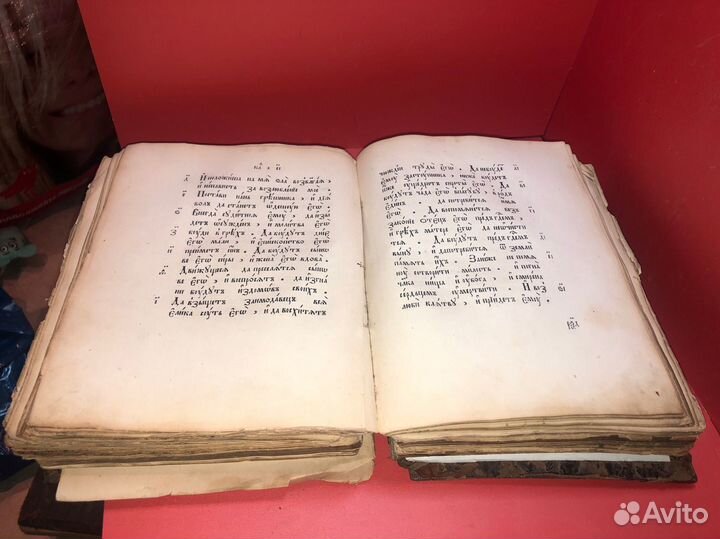 И положиша на мѧ ѕла воз благаѧ,
и ненависть за возлюбленіе мое.
Постави нань грѣшника, и діѧ
волъ да станетъ ѡдесную єгѡ.
Внегда судитисѧ єму, да изы
детъ ѡсужденъ, и молитва єгѡ
буди в грѣхъ. Да будутъ дніе
єгѡ мали, и єпископство єгѡ
пріиметъ инъ. Да будутъ сынове
єгѡ сиры, и жена єгѡ вдова.
Движущесѧ да преселѧтсѧ сынове
єгѡ, и воспросѧтъ. да изгна
ни будутъ из домовъ своихъ.
Да взыщетъ заимодавецъ всѧ
єлика суть єгѡ, и да восхитѧтъ
чюждіи труды єгѡ. Да не будетъ
єму заступника, ниже будетъ
ущедрѧѧ сироты єгѡ. Да
будутъ чада єгѡ в погубу, в родѣ
єдинѣмъ да потребитсѧ имѧ
єгѡ. Да воспомѧнетсѧ безза
коніе ѿтецъ єгѡ предъ гдемъ,
и грѣхъ матере єгѡ да не ѡчисти
тсѧ. Да будутъ предъ гдемъ
выну, и да потребитсѧ ѿ землѧ
памѧть ихъ. Занеже не помѧ
ну сотворити милость. и погна
чака нища и убога, и смирена
сердцемъ умертвити. И воз
люби клѧтву, и пріидетъ єму.